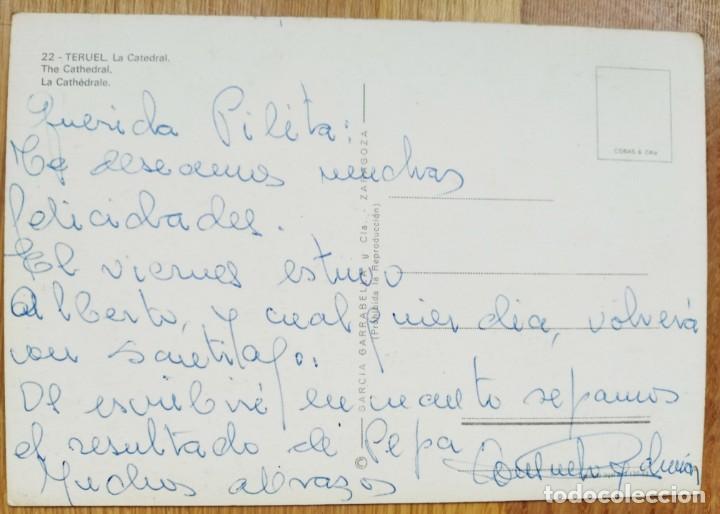 22 - TERUEL. La Catedral.
The Cathedral.
La Cathédrale.
COBAS & Cía
Querida Pilita:
Te deseamos muchas
felicidades.
El viernes estuvo
Alberto, y cualquier dia, volverá
con Santiago.
Os escribiré en cuanto sepamos
el resultado de Pepa
Muchos abrazos
© GARCIA GARRABELLA y Cía. - ZARAGOZA
(Prohibida la Reproducción)
todocoleccion.net